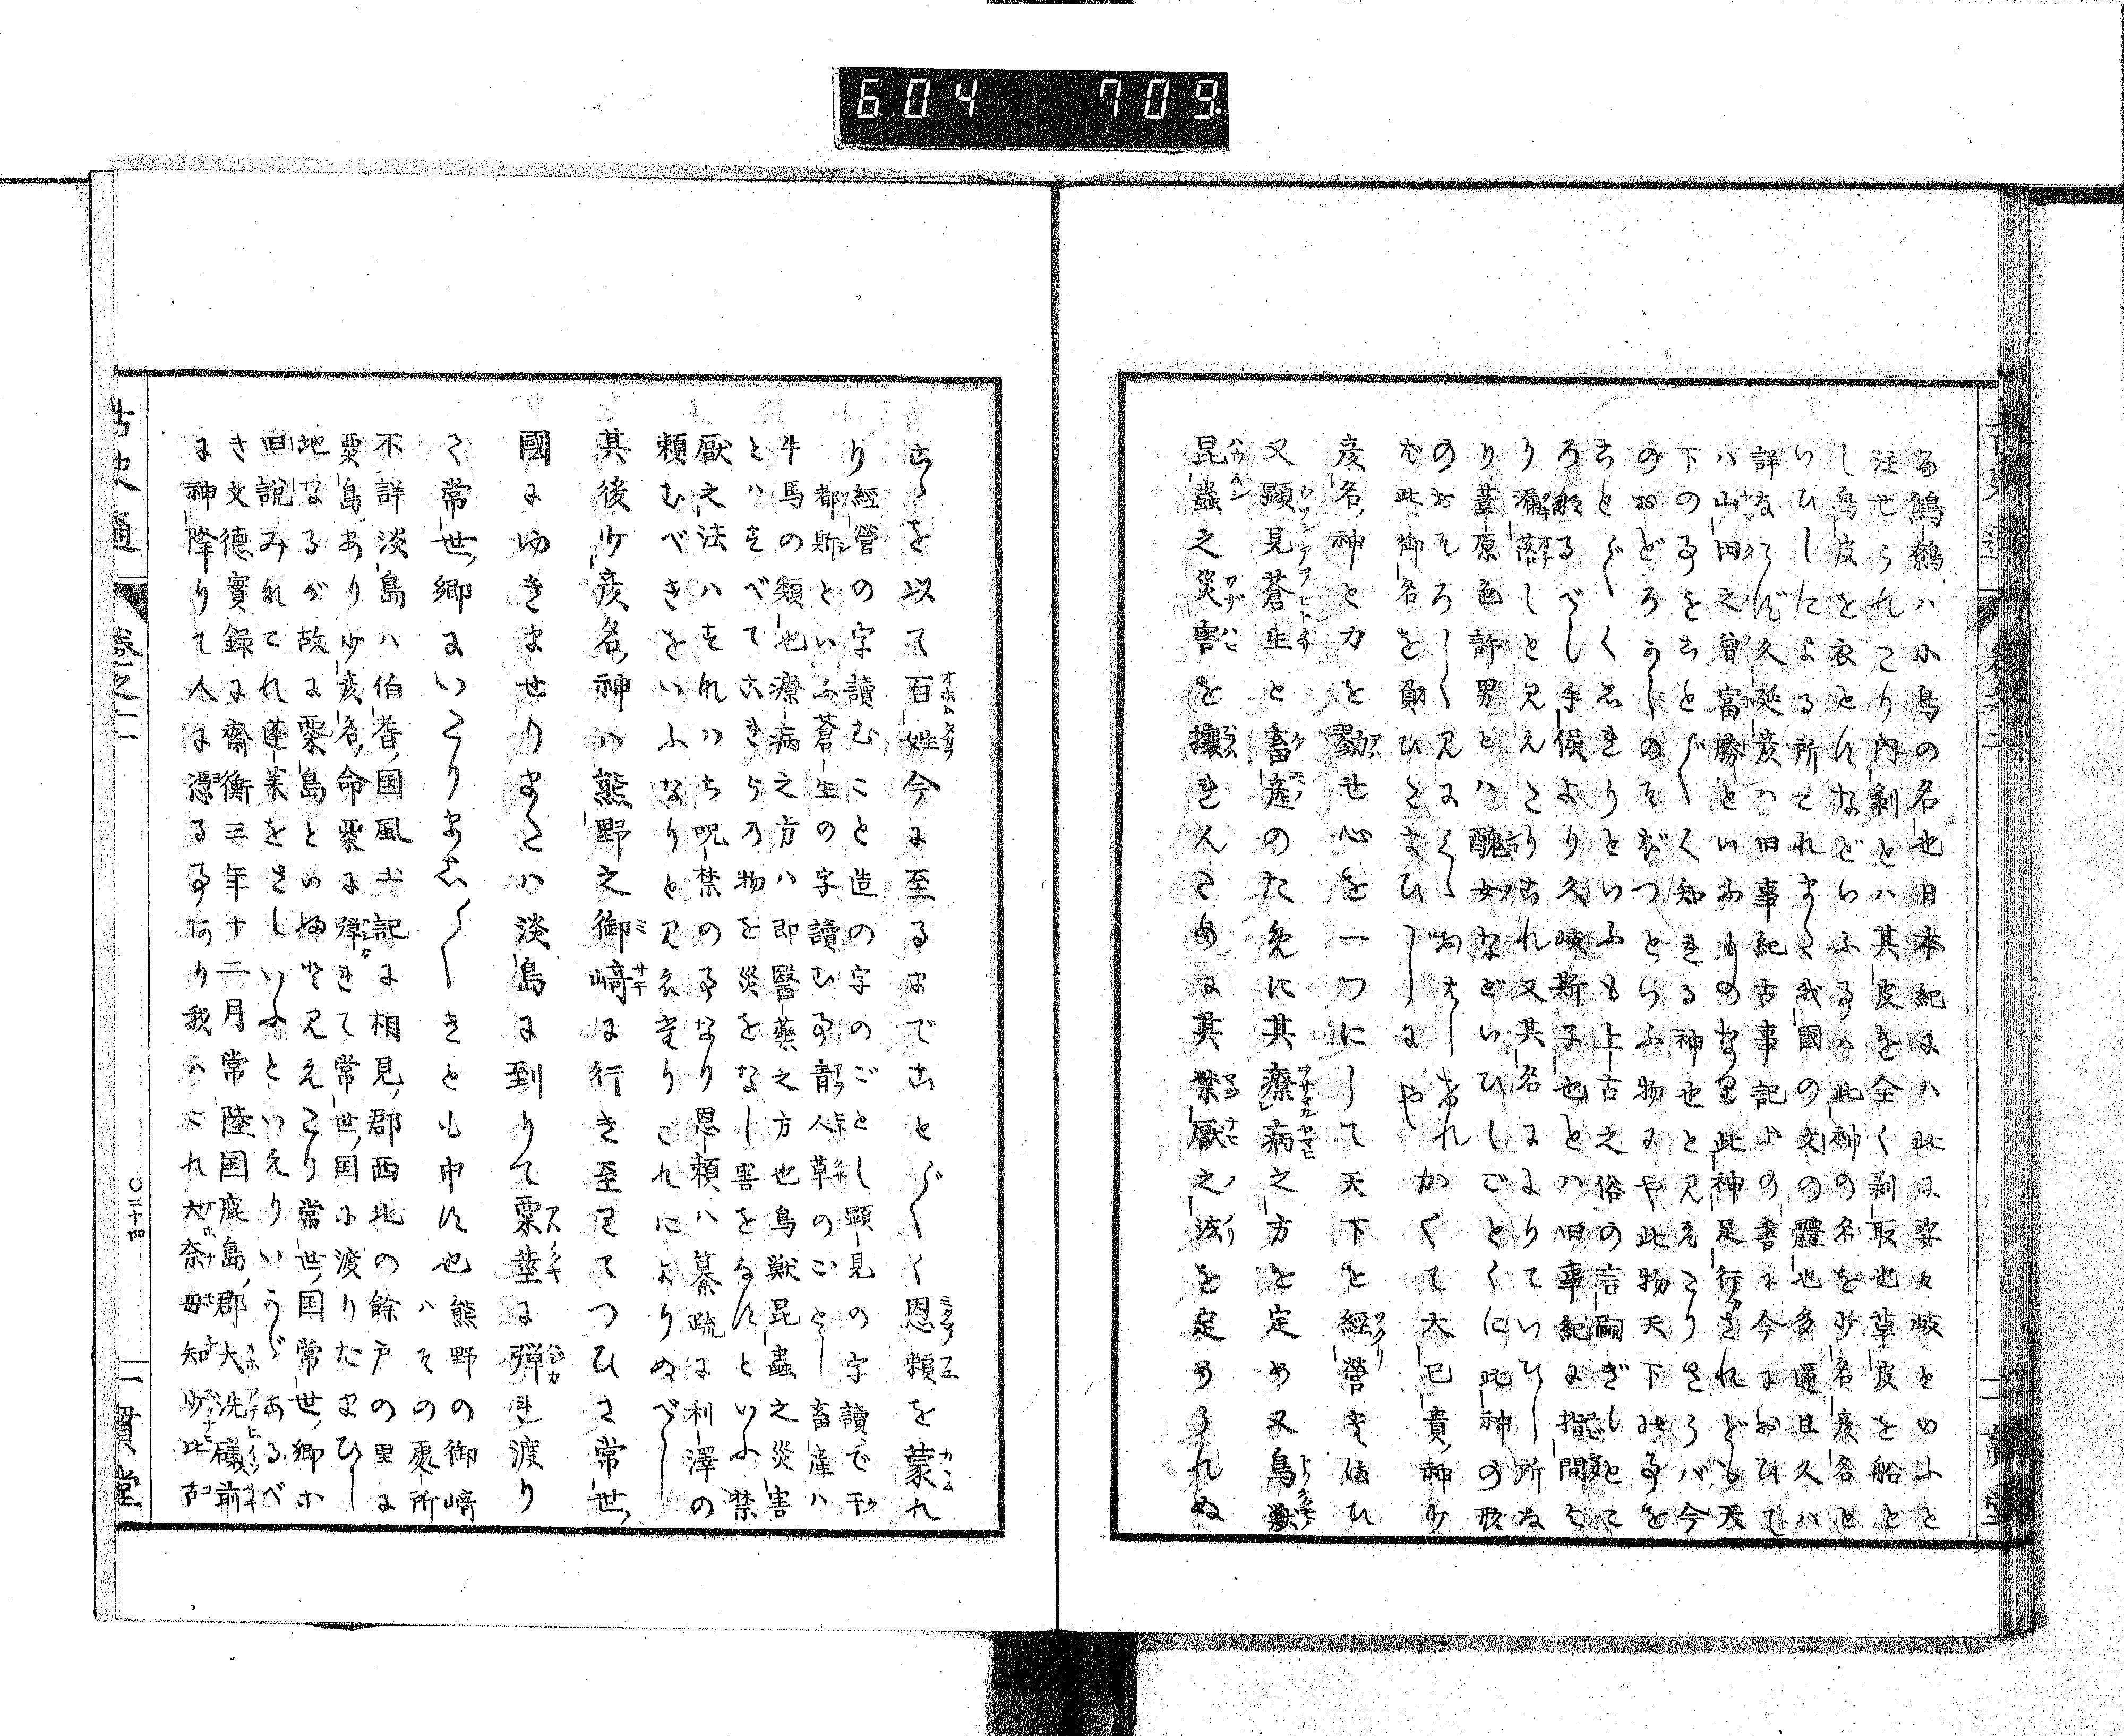 604 709
る鷦鷯ハ小鳥の名也日本紀にハ此に娑々岐といふと
注せられたり内剥とハ其皮を全く剥取也草皮を船と
し鳥皮を衣とすなどいふ事ハ此神の名を少名彦名と
いひしによる所これまた我國の文の體也多邇且久ハ
詳ならず久延彦ハ旧事紀古事記ホの書に今におひて
ハ山田之曾富騰といふものなり此神足行されども天
下の事をことごとく知れる神也と見えたりさらバ今
のおどろかしのそほづといふ物にや此物天下の事を
ことごとくしれりといふも上古之俗の言嗣ぎしとこ
ろ
なるべし手俣より久岐斯子也とハ旧事紀に指間よ
り漏落しと見えたりこれ又其名によりていひし所な
り葦原色許男とハ醜女などいひしごとくに此神の形
のおそろしく見にくくおはしければ
此御名を負ひたまひしにや
かくて大已貴神少
彦名神と力を勠せ心を一つにして天下を經營たまひ
又顕見蒼生と畜産のために其療病之方を定め又鳥獣
昆蟲之災害を攘はんために其禁厭之法を定められぬ
こゝを以て百姓今に至るまでことごとく恩頼を蒙れ
り
經營の字讀むこと造の字のごとし顕見の字讀で宇
都斯といふ蒼生の字讀む事青人草のごとし畜産ハ
牛馬の類也療病之方ハ即醫藥之方也鳥獣昆蟲之災害
とハすべてこれらの物を災をなし害をなすといふ禁
厭之法ハすなハち呪禁の事なり恩頼ハ纂疏に利澤の
頼むべきをいふなりと見えたりこれによりぬべし
其後少彦名神ハ熊野之御﨑に行き至りてつひに常世
國にゆきませりまたハ淡島に到りて粟莖に弾れ渡り
て常世郷にいたりましゝきとも申す也
熊野の御﨑
ハその處所
不詳淡島ハ伯耆国風土記に相見郡西北の餘戸の里に
粟島あり少彦名命粟に弾れて常世国に渡りたまひし
地なるが故に粟島といふと見えたり常世国常世郷ホ
旧説みなこれ蓬莱をさしいふといえりいかゞあるべ
き文德實録に齋衡三年十二月常陸国鹿島郡大洗礒前
に神降りて人に憑る事あり我ハこれ大奈母知少比古
古史通 卷之二 〇三十四 一貫堂